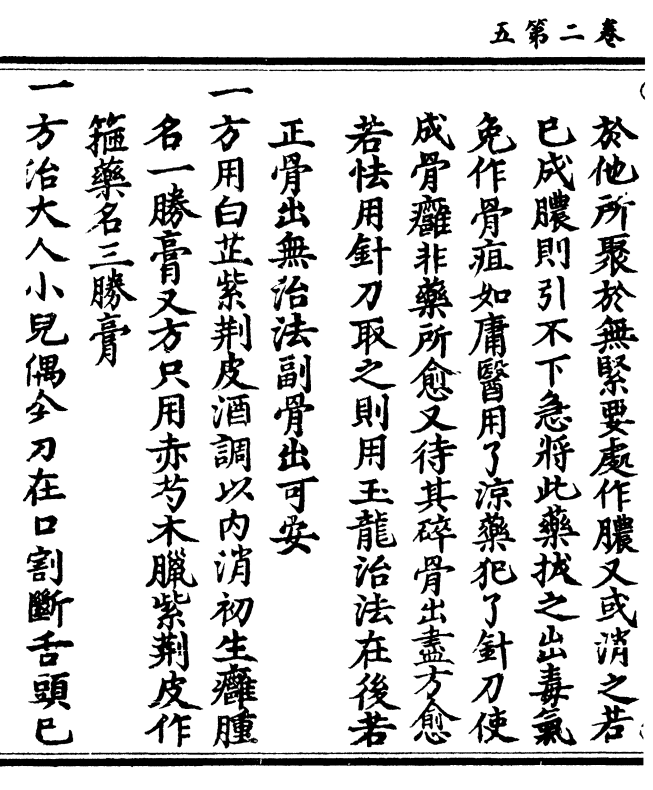 卷二第五
於他所聚於無緊要處作膿又或消之若
已成膿則引不下急將此藥拔之出毒氣
免作骨疽如庸醫用了涼藥犯了針刀使
成骨癰非藥所愈又待其碎骨出盡方愈
若怯用針刀取之則用玉龍治法在後若
正骨出無治法副骨出可安
一方用白芷紫荆皮酒調以內消初生癰腫
名一勝膏又方只用赤芍木臘紫荆皮作
箍藥名三勝膏
一方治大人小兒偶全刀在口割斷舌頭已